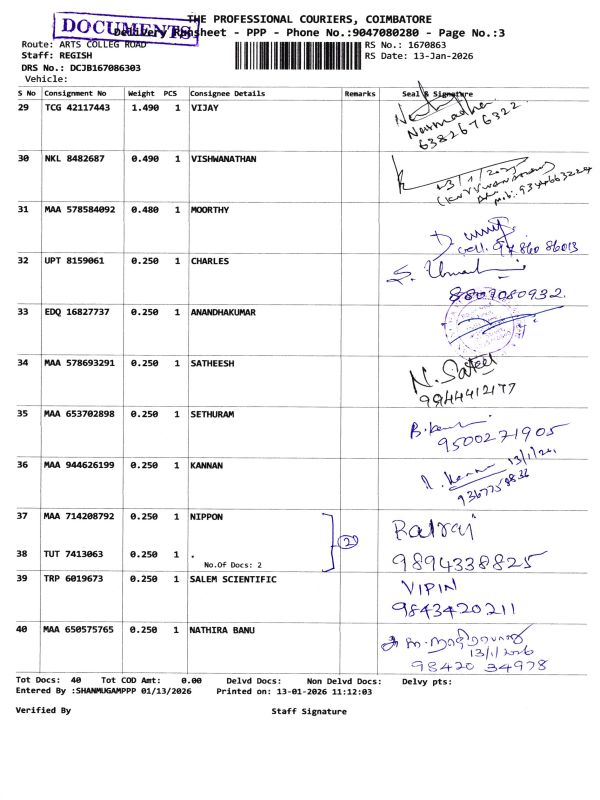 THE PROFESSIONAL COURIERS, COIMBATORE
DOCUMENTS
Delivery Runsheet - PPP - Phone No.:9047080280 - Page No.:3
Route: ARTS COLLEG ROAD
RS No.: 1670863
Staff: REGISH
RS Date: 13-Jan-2026
DRS No.: DCJB167086303
Vehicle:
S No Consignment No Weight PCS Consignee Details Remarks Seal & Signature
29 TCG 42117443 1.490 1 VIJAY
Narmadha
6382676322
30 NKL 8482687 0.490 1 VISHWANATHAN
31 MAA 578584092 0.480 1 MOORTHY
cell. 97860 86013
32 UPT 8159061 0.250 1 CHARLES
8807080932.
33 EDQ 16827737 0.250 1 ANANDHAKUMAR
34 MAA 578693291 0.250 1 SATHEESH
9944412177
35 MAA 653702898 0.250 1 SETHURAM
9500271905
36 MAA 944626199 0.250 1 KANNAN
13/1/26
37 MAA 714208792 0.250 1 NIPPON
(2)
Balraj
38 TUT 7413063 0.250 1 .
No.Of Docs: 2
9894338825
39 TRP 6019673 0.250 1 SALEM SCIENTIFIC
VIPIN
9843420211
40 MAA 650575765 0.250 1 NATHIRA BANU
13/1/2026
98420 34978
Tot Docs: 40 Tot COD Amt: 0.00 Delvd Docs: Non Delvd Docs: Delvy pts:
Entered By :SHANMUGAMPPP 01/13/2026 Printed on: 13-01-2026 11:12:03
Verified By Staff Signature